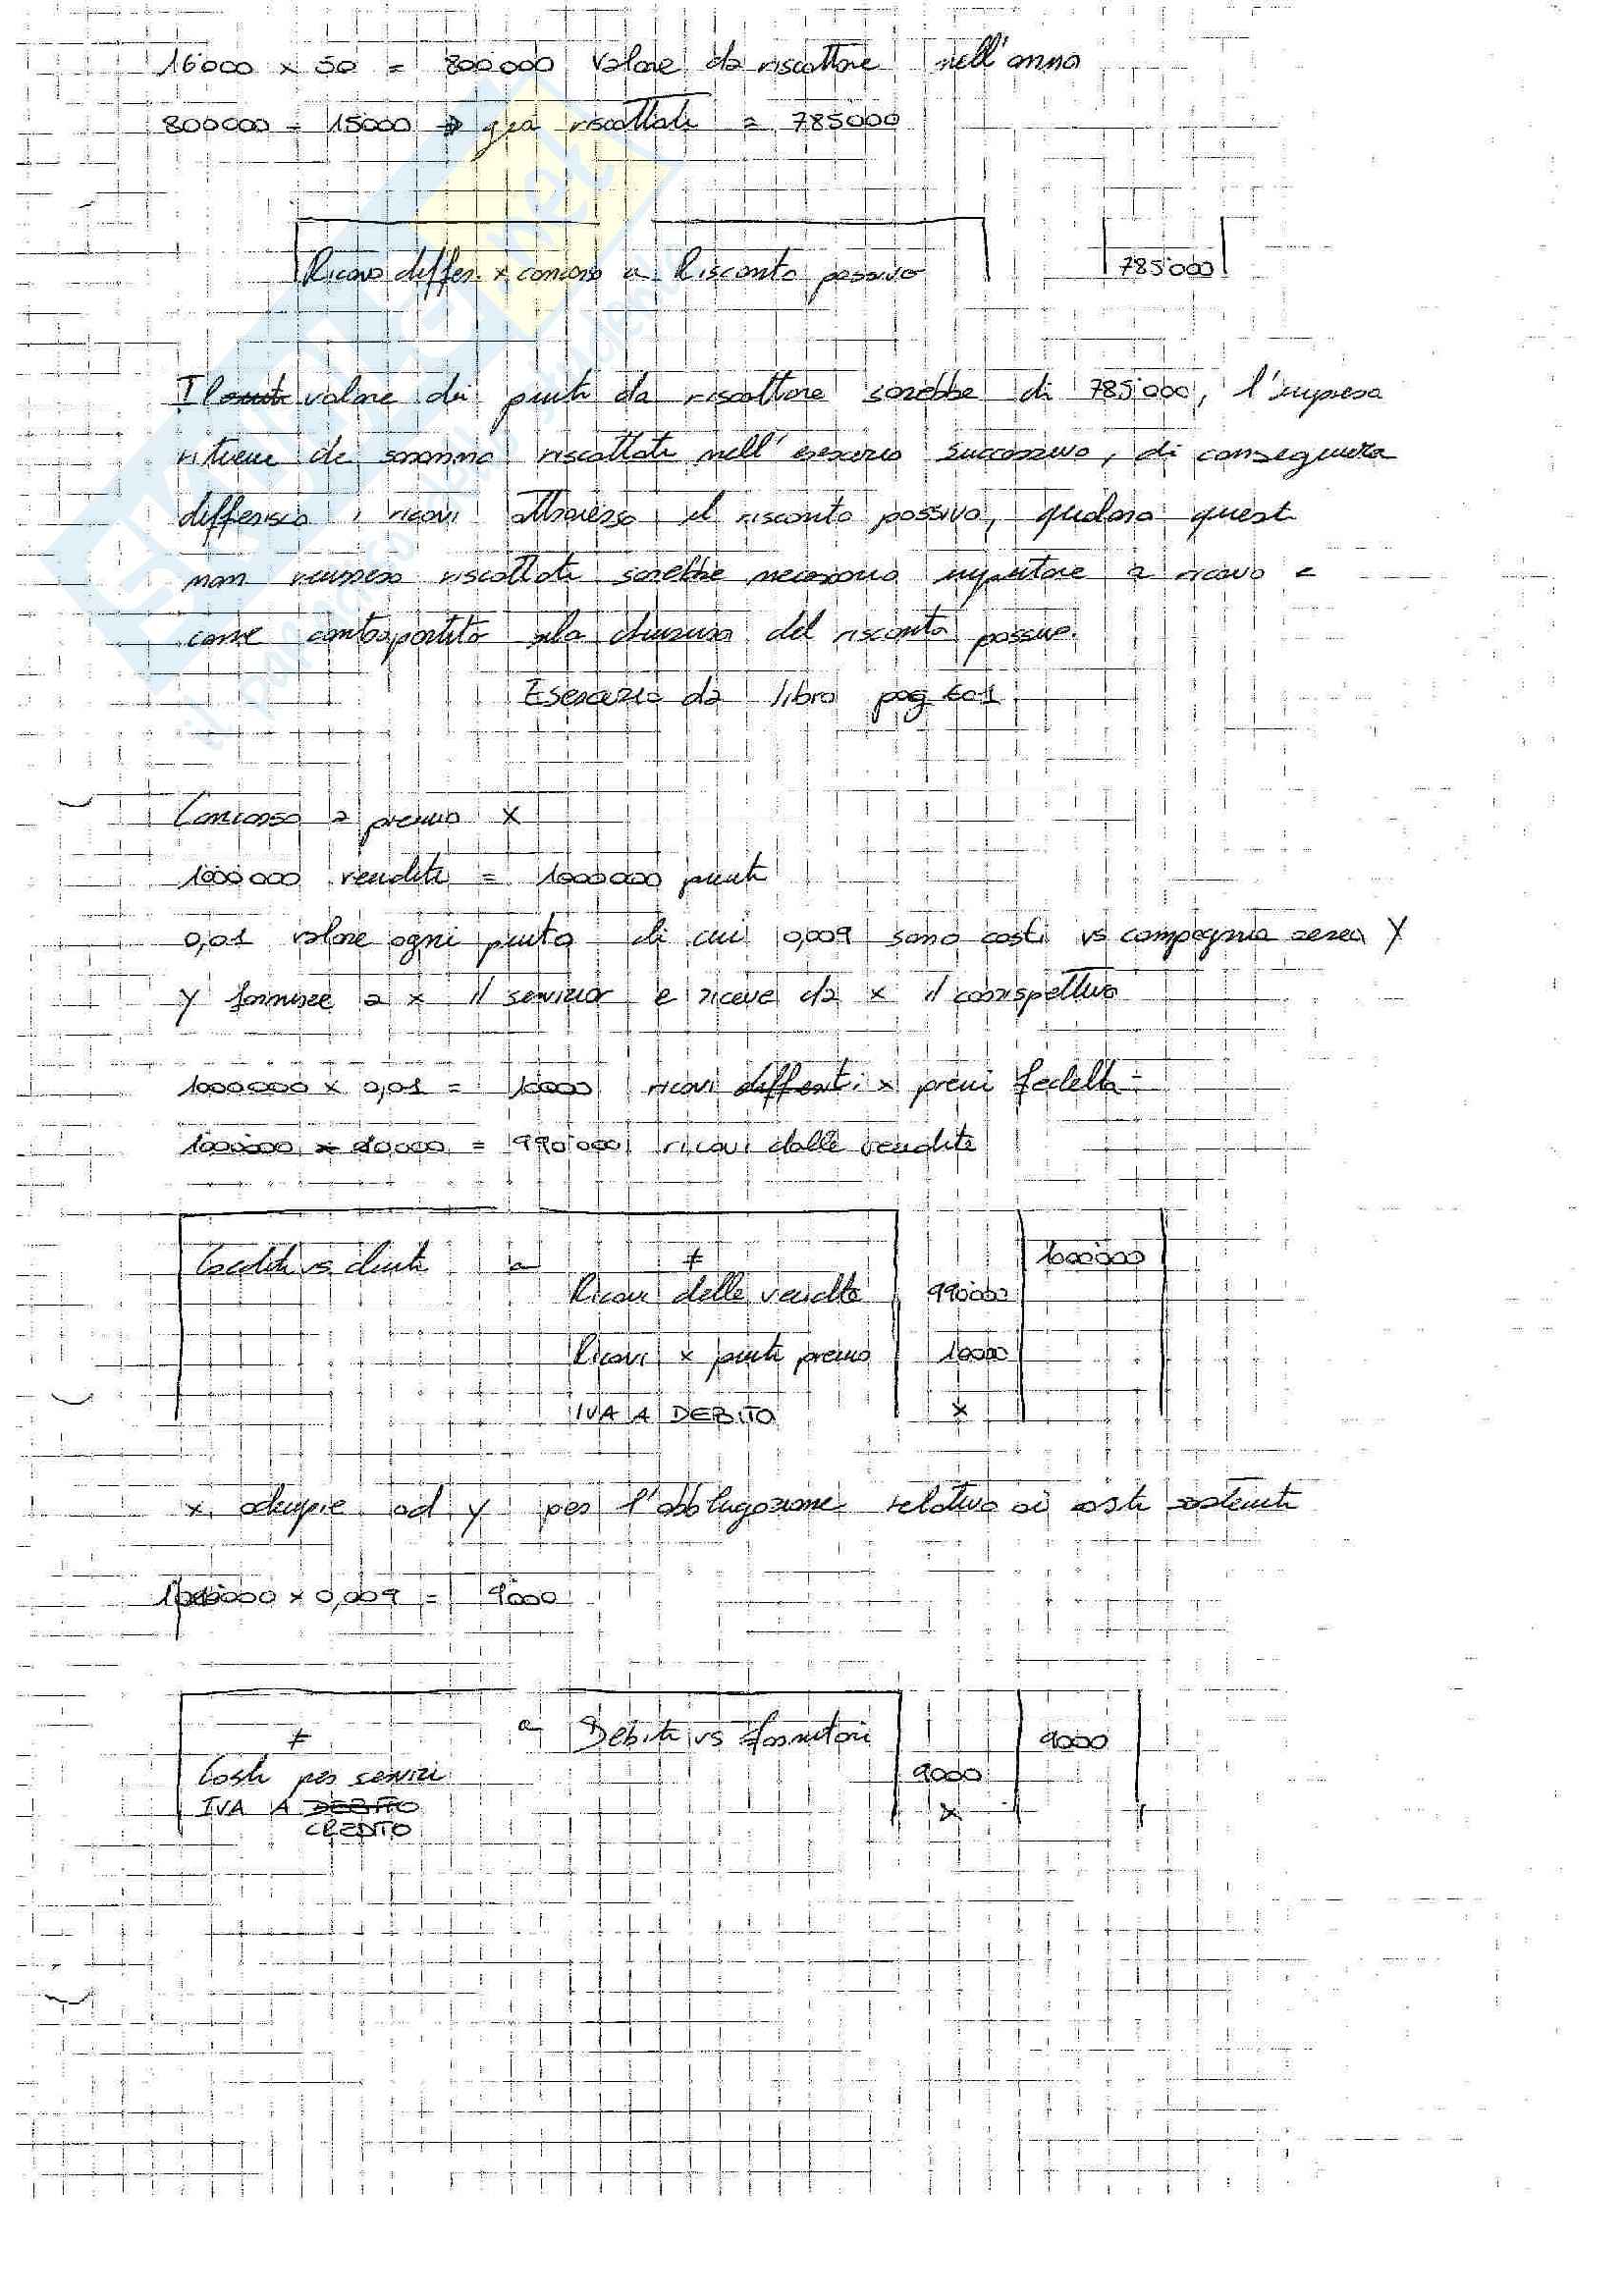 16'000 x 50 = 800'000 Valore da riscattare nell'anno
800'000 - 15000 → già riscattati = 785'000
Ricavo differ. x concorso a Risconto passivo 785'000
Il valore dei punti da riscattare sarebbe di 785'000, l'impresa
ritiene che saranno riscattati nell'esercizio successivo, di conseguenza
differisco i ricavi attraverso il risconto passivo, qualora questi
non venissero riscattati sarebbe necessario imputare a ricavo e
come contropartita la chiusura del risconto passivo.
Esercizio da libro pag 601
Concorso a premio X
1000'000 vendite = 1000'000 punti
0,01 valore ogni punto di cui 0,009 sono costi vs compagnia aerea Y
Y fornisce a x il servizio e riceve da x il corrispettivo
1000'000 x 0,01 = 10'000 ricavi differiti x premi fedeltà
1000'000 - 10'000 = 990'000 ricavi dalle vendite
Crediti vs clienti a ≠ 1000'000
Ricavi delle vendite 990'000
Ricavi x punti premio 10'000
IVA A DEBITO x
x adempie ad y per l'obbligazione relativa ai costi sostenuti
1000'000 x 0,009 = 9'000
≠ a Debiti vs fornitori 9000
Costi per servizi 9000
IVA A DEBITO x
CREDITO